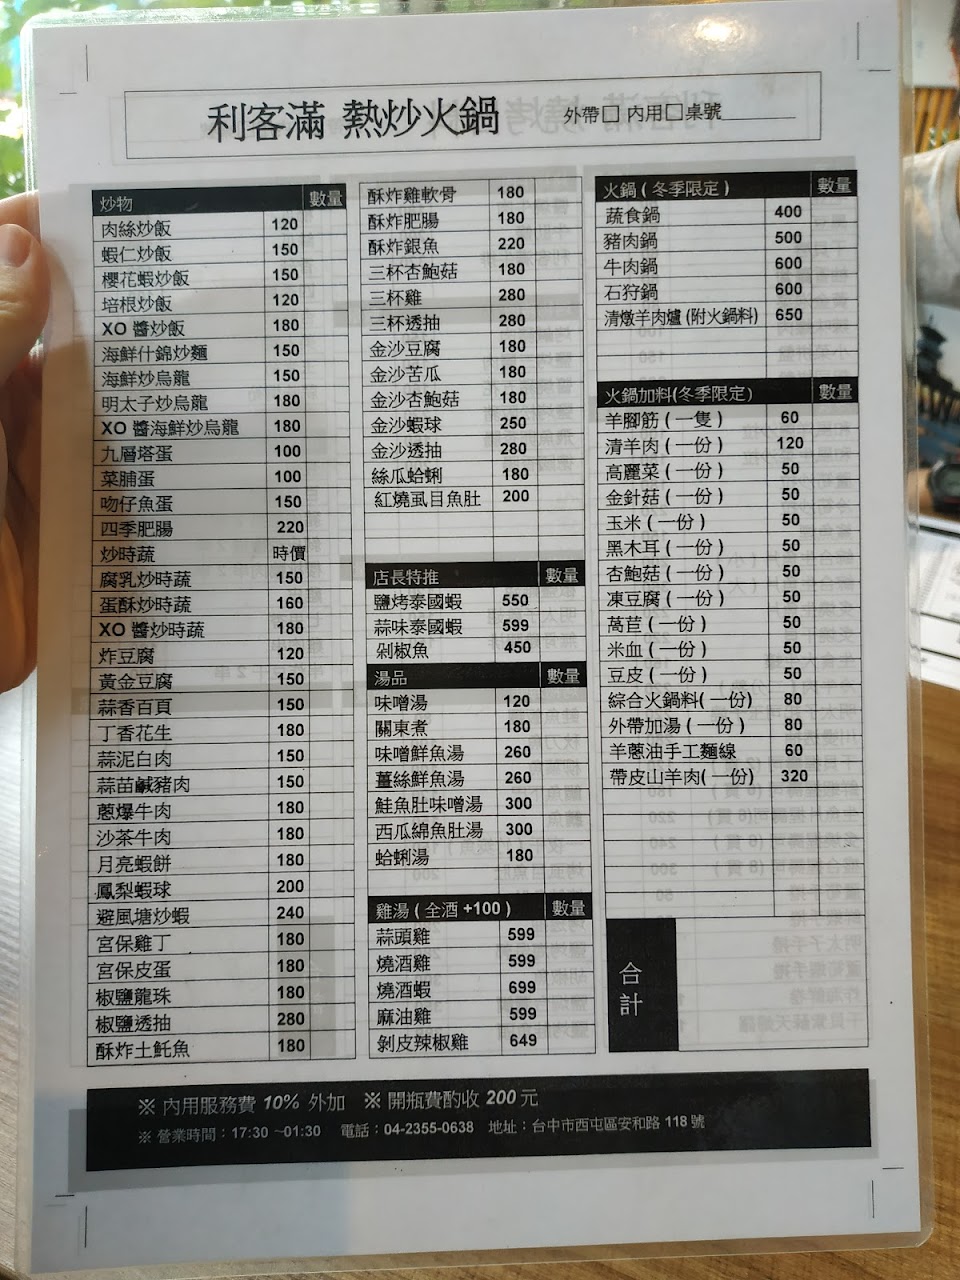 利客滿 熱炒火鍋 外帶□ 內用□桌號
炒物 數量
肉絲炒飯 120
蝦仁炒飯 150
櫻花蝦炒飯 150
培根炒飯 120
XO 醬炒飯 180
海鮮什錦炒麵 150
海鮮炒烏龍 150
明太子炒烏龍 180
XO 醬海鮮炒烏龍 180
九層塔蛋 100
菜脯蛋 100
吻仔魚蛋 150
四季肥腸 220
炒時蔬 時價
腐乳炒時蔬 150
蛋酥炒時蔬 160
XO 醬炒時蔬 180
炸豆腐 120
黃金豆腐 150
蒜香百頁 150
丁香花生 180
蒜泥白肉 150
蒜苗鹹豬肉 150
蔥爆牛肉 180
沙茶牛肉 180
月亮蝦餅 180
鳳梨蝦球 200
避風塘炒蝦 240
宮保雞丁 180
宮保皮蛋 180
椒鹽龍珠 180
椒鹽透抽 280
酥炸土魠魚 180
酥炸雞軟骨 180
酥炸肥腸 180
酥炸銀魚 220
三杯杏鮑菇 180
三杯雞 280
三杯透抽 280
金沙豆腐 180
金沙苦瓜 180
金沙杏鮑菇 180
金沙蝦球 250
金沙透抽 280
絲瓜蛤蜊 180
紅燒虱目魚肚 200
店長特推 數量
鹽烤泰國蝦 550
蒜味泰國蝦 599
剁椒魚 450
湯品 數量
味噌湯 120
關東煮 180
味噌鮮魚湯 260
薑絲鮮魚湯 260
鮭魚肚味噌湯 300
西瓜綿魚肚湯 300
蛤蜊湯 180
雞湯 ( 全酒 +100 ) 數量
蒜頭雞 599
燒酒雞 599
燒酒蝦 699
麻油雞 599
剝皮辣椒雞 649
火鍋 ( 冬季限定 ) 數量
蔬食鍋 400
豬肉鍋 500
牛肉鍋 600
石狩鍋 600
清燉羊肉爐 (附火鍋料) 650
火鍋加料(冬季限定) 數量
羊腳筋 ( 一隻 ) 60
清羊肉 ( 一份 ) 120
高麗菜 ( 一份 ) 50
金針菇 ( 一份 ) 50
玉米 ( 一份 ) 50
黑木耳 ( 一份 ) 50
杏鮑菇 ( 一份 ) 50
凍豆腐 ( 一份 ) 50
萵苣 ( 一份 ) 50
米血 ( 一份 ) 50
豆皮 ( 一份 ) 50
綜合火鍋料( 一份) 80
外帶加湯 ( 一份 ) 80
羊蔥油手工麵線 60
帶皮山羊肉( 一份) 320
合計
※ 內用服務費 10% 外加 ※ 開瓶費酌收 200 元
※ 營業時間：17:30 ~01:30 電話：04-2355-0638 地址：台中市西屯區安和路 118 號